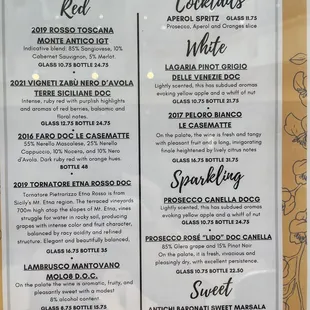 Red
2019 ROSSO TOSCANA
MONTE ANTICO IGT
Indicative blend: 85% Sangiovese, 10%
Cabernet Sauvignon, 5% Merlot.
GLASS 10.75 BOTTLE 24.75
2021 VIGNETI ZABÙ NERO D'AVOLA
TERRE SICILIANE DOC
Intense, ruby red with purplish highlights
and aromas of red berries, balsamic and
floral notes.
GLASS 12.75 BOTTLE 24.75
2016 FARO DOC LE CASEMATTE
55% Nerello Mascalese, 25% Nerello
Cappuccio, 10% Nocera, and 10% Nero
d'Avola. Dark ruby red with orange hues.
BOTTLE 48
2019 TORNATORE ETNA ROSSO DOC
Tornatore Pietrarizzo Etna Rosso is from
Sicily's Mt. Etna region. The terraced vineyards
700m high atop the slopes of Mt. Etna, vines
struggle for water in rocky soil, producing
grapes with intense color and fruit character,
balanced by racy acidity and refined
structure. Elegant and beautifully balanced.
GLASS 16.75 BOTTLE 35
LAMBRUSCO MANTOVANO
MOLO8 D.O.C.
On the palate the wine is aromatic, fruity, and
pleasantly sweet with a modest
8% alcohol content
GLASS 8.75 BOTTLE 15.75
Cocktails
APEROL SPRITZ GLASS 11.75
Prosecco, Aperol and Oranges slice
White
LAGARIA PINOT GRIGIO
DELLE VENEZIE DOC
Lightly scented, this has subdued aromas
evoking yellow apple and a whiff of nut
GLASS 10.75 BOTTLE 21.75
2017 PELORO BIANCO
LE CASEMATTE
On the palate, the wine is fresh and tangy
with pleasant fruit and a long, invigorating
finale heightened by lively citrus notes
GLASS 16.75 BOTTLE 31.75
Sparkling
PROSECCO CANELLA DOCG
Lightly scented, this has subdued aromas
evoking yellow apple and a whiff of nut
GLASS 10.75 BOTTLE 24.75
PROSECCO ROSÉ "LIDO" DOC CANELLA
85% Glera grape and 15% Pinot Noir
On the palate, it is fresh, vivacious and
pleasingly dry, with excellent persistence.
GLASS 10.75 BOTTLE 22.50
Sweet
ANTICHI BARONATI SWEET MARSALA